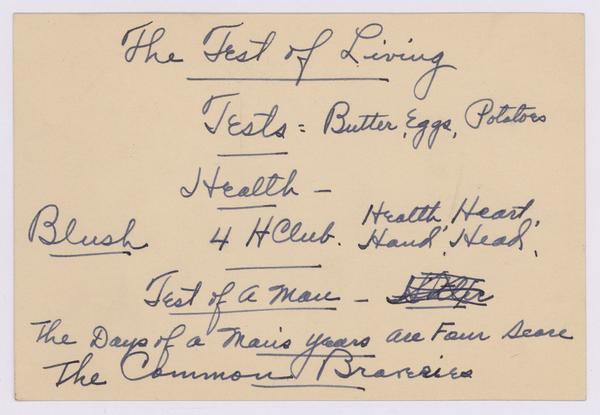 The Test of Living
Tests = Butter, Eggs, Potatoes
Health -
Blush 4 H Club. Health, Heart,
Hand, Head,
Test of a Man -
The Days of a Man's years are Four Score
The Common Braveries